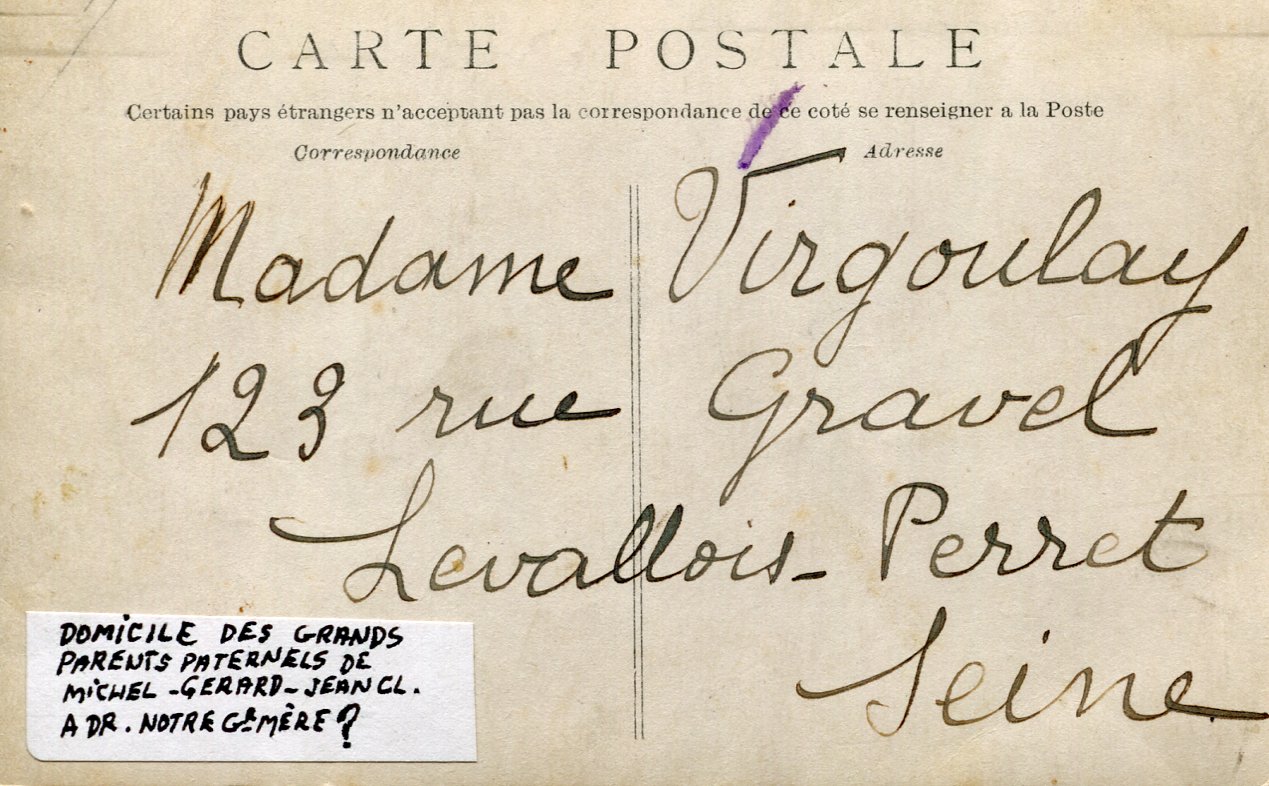 CARTE POSTALE
Certains pays étrangers n'acceptant pas la correspondance de ce coté se renseigner a la Poste
Correspondance Adresse
Madame Virgoulay
123 rue Gravel
Levallois-Perret
Seine
DOMICILE DES GRANDS
PARENTS PATERNELS DE
MICHEL-GERARD-JEAN CL.
A DR. NOTRE Gd MÈRE ?